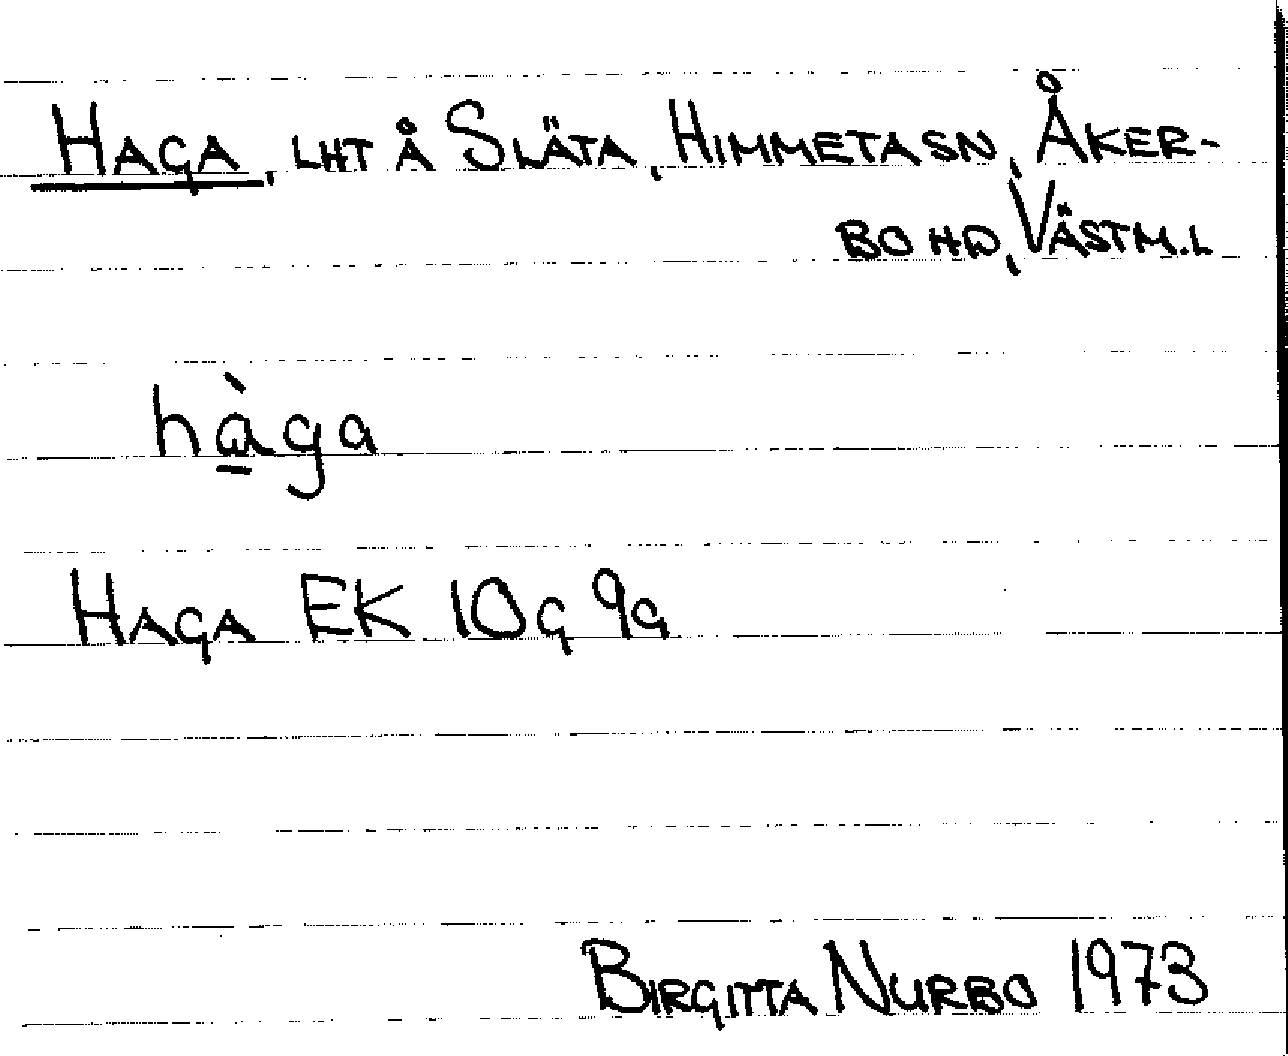 HAGA, LHT Å SLÄTA, HIMMETA SN, ÅKER-
BO HD, VÄSTM.L
hàga
HAGA EK 10g 9a
BIRGITTA NURBO 1973